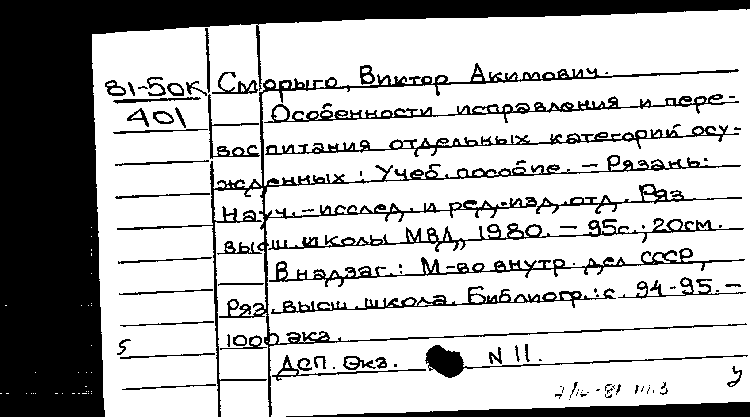 81-50К Сморыго, Виктор Акимович.
401 Особенности исправления и пере-
воспитания отдельных категорий осу-
жденных : Учеб. пособие. – Рязань:
Науч.-исслед. и ред.-изд. отд. Ряз.
высш. школы МВД, 1980. – 95с.; 20см.
В надзаг.: М-во внутр. дел СССР,
Ряз. высш. школа. Библиогр.: с. 94-95. –
5 1000 экз.
ДСП. Экз. N 11.